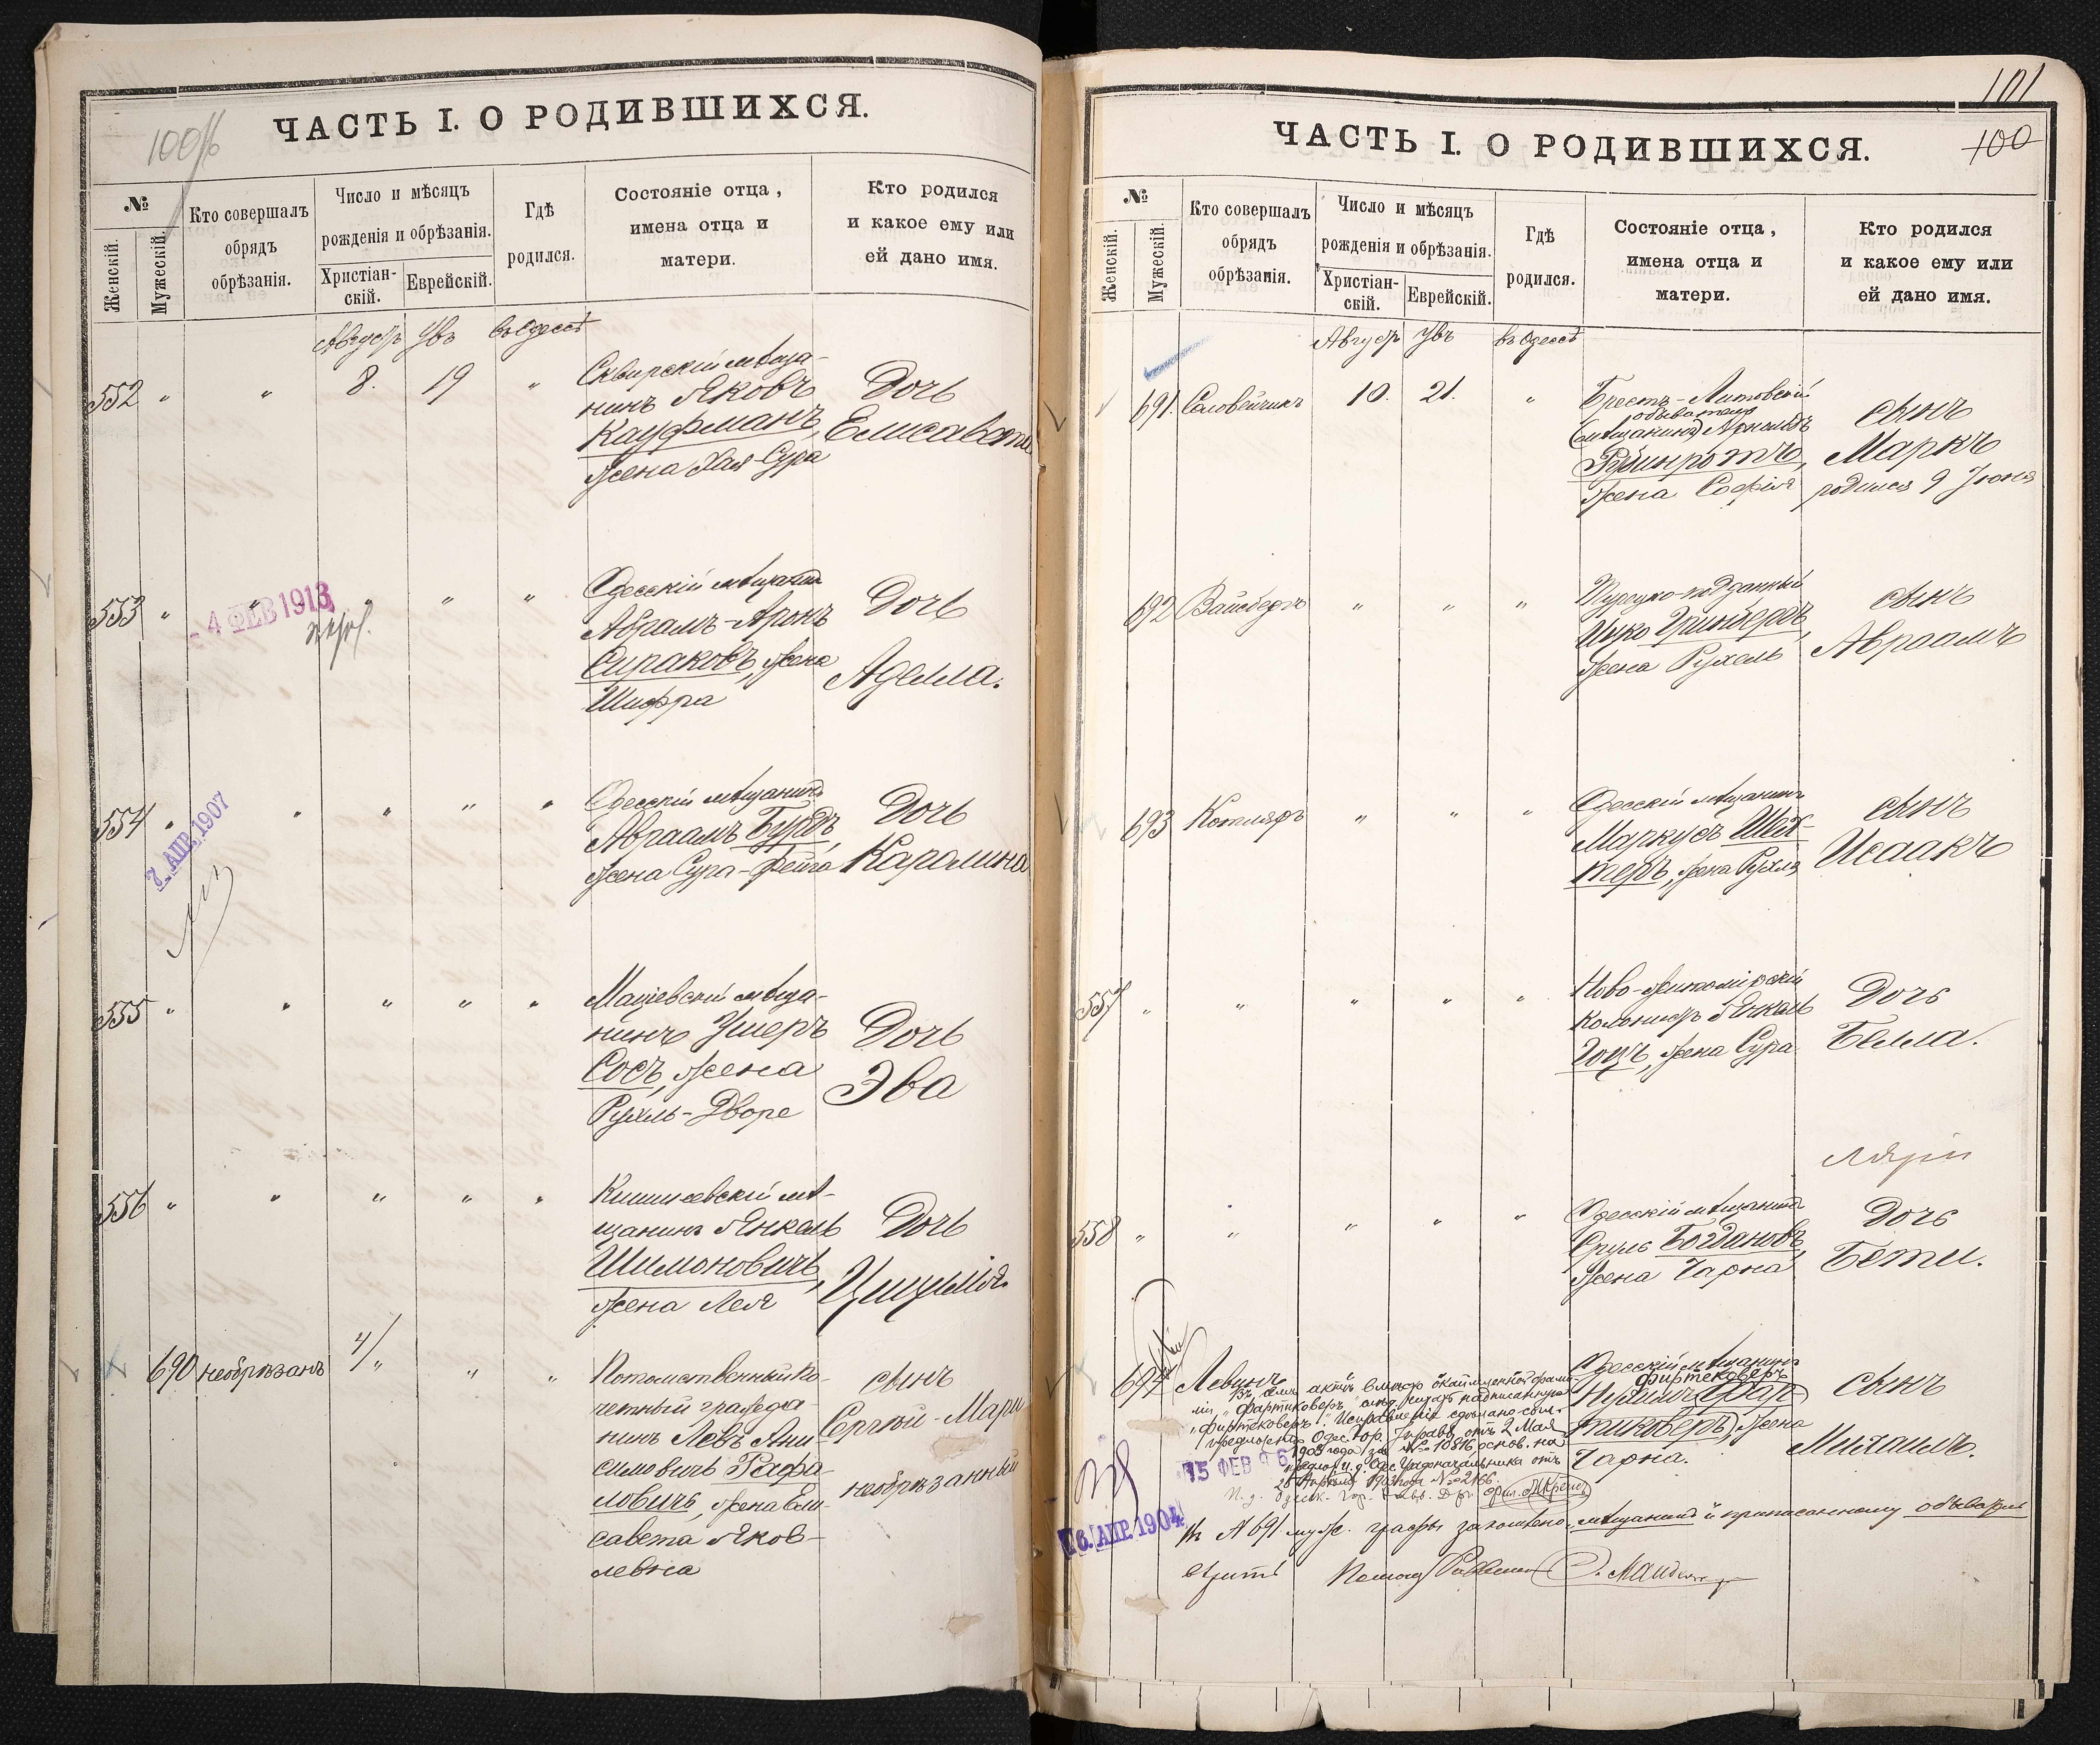 100
ЧАСТЬ I. О РОДИВШИХСЯ.
№
Женскій.
Мужескій.
Кто совершалъ
обрядъ
обрѣзанія.
Число и мѣсяцъ
рожденія и обрѣзанія.
Христіан-
скій.
Еврейскій.
Гдѣ
родился.
Состояніе отца,
имена отца и
матери.
Кто родился
и какое ему или
ей дано имя.
Августъ Увъ въ Одессѣ
552 " " 8. 19 "
Сквирскій мѣща-
нинъ Яковъ
Кауфманъ,
жена Хая Сура
Дочь
Елисавета
553 " " " " "
- 4 ФЕВ 1913
Одесскій мѣщанин
Абрамъ-Аронъ
Сираковъ, жена
Шифра
Дочь
Аделла.
554 " " " " "
7. АПР. 1907
Одесскій мѣщанинъ
Авраамъ Букъ,
жена Сура-Фейга
Дочь
Каралина
555 " " " " "
Маціевскій мѣща-
нинъ Ушеръ
Сосъ, жена
Рухль-Дворе
Дочь
Эва
556 " " " " "
Кишиневскій мѣ-
щанинъ Янкель
Шимоновичъ,
жена Лея
Дочь
Цицилія.
690 необрѣзанъ " " "
Потомственный по-
четный гражда-
нинъ Левъ Ани-
симовичъ Рафа-
ловичъ, жена Ели-
савета Яков-
левна
сынъ
Сергѣй-Марк
необрѣзанный
101
100
ЧАСТЬ I. О РОДИВШИХСЯ.
№
Женскій.
Мужескій.
Кто совершалъ
обрядъ
обрѣзанія.
Число и мѣсяцъ
рожденія и обрѣзанія.
Христіан-
скій.
Еврейскій.
Гдѣ
родился.
Состояніе отца,
имена отца и
матери.
Кто родился
и какое ему или
ей дано имя.
Августъ Увъ въ Одессѣ
691. Соловейчикъ 10. 21. "
Брестъ-Литовскій
обыватель
(мѣщанинъ) Арнольдъ
Рубинротъ,
жена Софія
сынъ
Маркъ
родился 9 Іюня
692 Вайсбергъ " " "
Турецко-подданный
Ицко Гринбергъ,
жена Рухель
сынъ
Авраамъ
693 Котляръ " " "
Одесскій мѣщанинъ
Маркусъ Шех-
теръ, жена Рухля
сынъ
Исаакъ
557 " " " " "
Ново-Житомірскій
колонистъ Янкель
Гоцъ, жена Сура
Дочь
Белла.
558 " " " " "
Одесскій мѣщанинъ
Сруль Богдановъ,
жена Чарна
Дочь
Бети.
694 Левинъ
Одесскій мѣщанинъ
Фиртековеръ
Нухимъ (Фар-
тиковеръ), жена
Чарна.
сынъ
Михаилъ.
Въ семъ актѣ вмѣсто окаймленной фами-
ліи "Фартиковеръ" слѣд. читать надписанную
"Фиртековеръ". Исправленіе сдѣлано согл.
предложенію Одес. Гор. Управы отъ 2 Мая
1903 года за № 10816, основ. на
предлож. и. д. Одес. Градоначальника отъ
1903 года №
15 ФЕВ 96
16. АПР. 1904
Въ № 691 муж. графы зачеркнено "мѣщанинъ" и приписанному обыватель
вѣрить